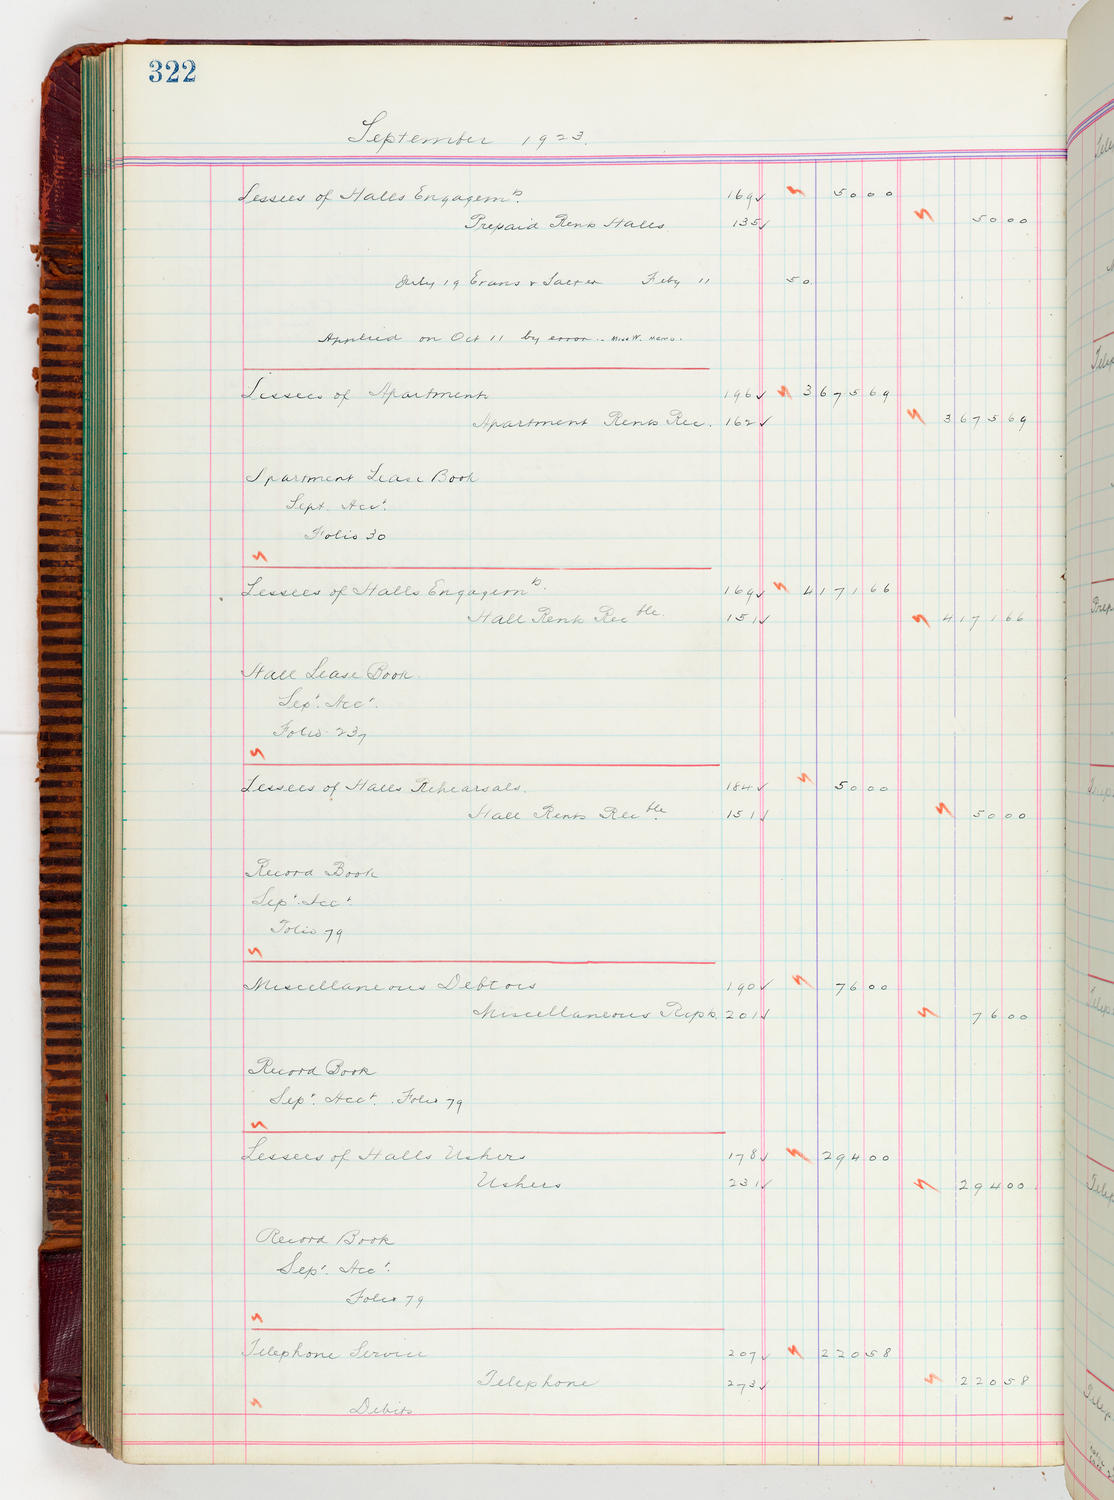 322
September 1923.
Lessees of Halls Engagemts. 169✓ 5000
Prepaid Rents Halls 135✓ 5000
July 19 Evans & Salter Feby 11 50.
Applied on Oct 11 by error.. Miss W. memo.
Lessees of Apartments 196✓ 367569
Apartment Rents Rec. 162✓ 367569
Apartment Lease Book
Sept. Acct.
Folio 30
Lessees of Halls Engagemts. 169✓ 417166
Hall Rents Recble. 151✓ 417166
Hall Lease Book.
Sept. Acct.
Folio 237
Lessees of Halls Rehearsals. 184✓ 5000
Hall Rents Recble. 151✓ 5000
Record Book
Sept. Acct
Folio 79
Miscellaneous Debtors 190✓ 7600
Miscellaneous Rcpts. 201✓ 7600
Record Book
Sept. Acct. Folio 79
Lessees of Halls Ushers 178✓ 29400
Ushers 231✓ 29400
Record Book
Sept. Acct.
Folio 79
Telephone Service 207✓ 22058
Telephone 273✓ 22058
Debits